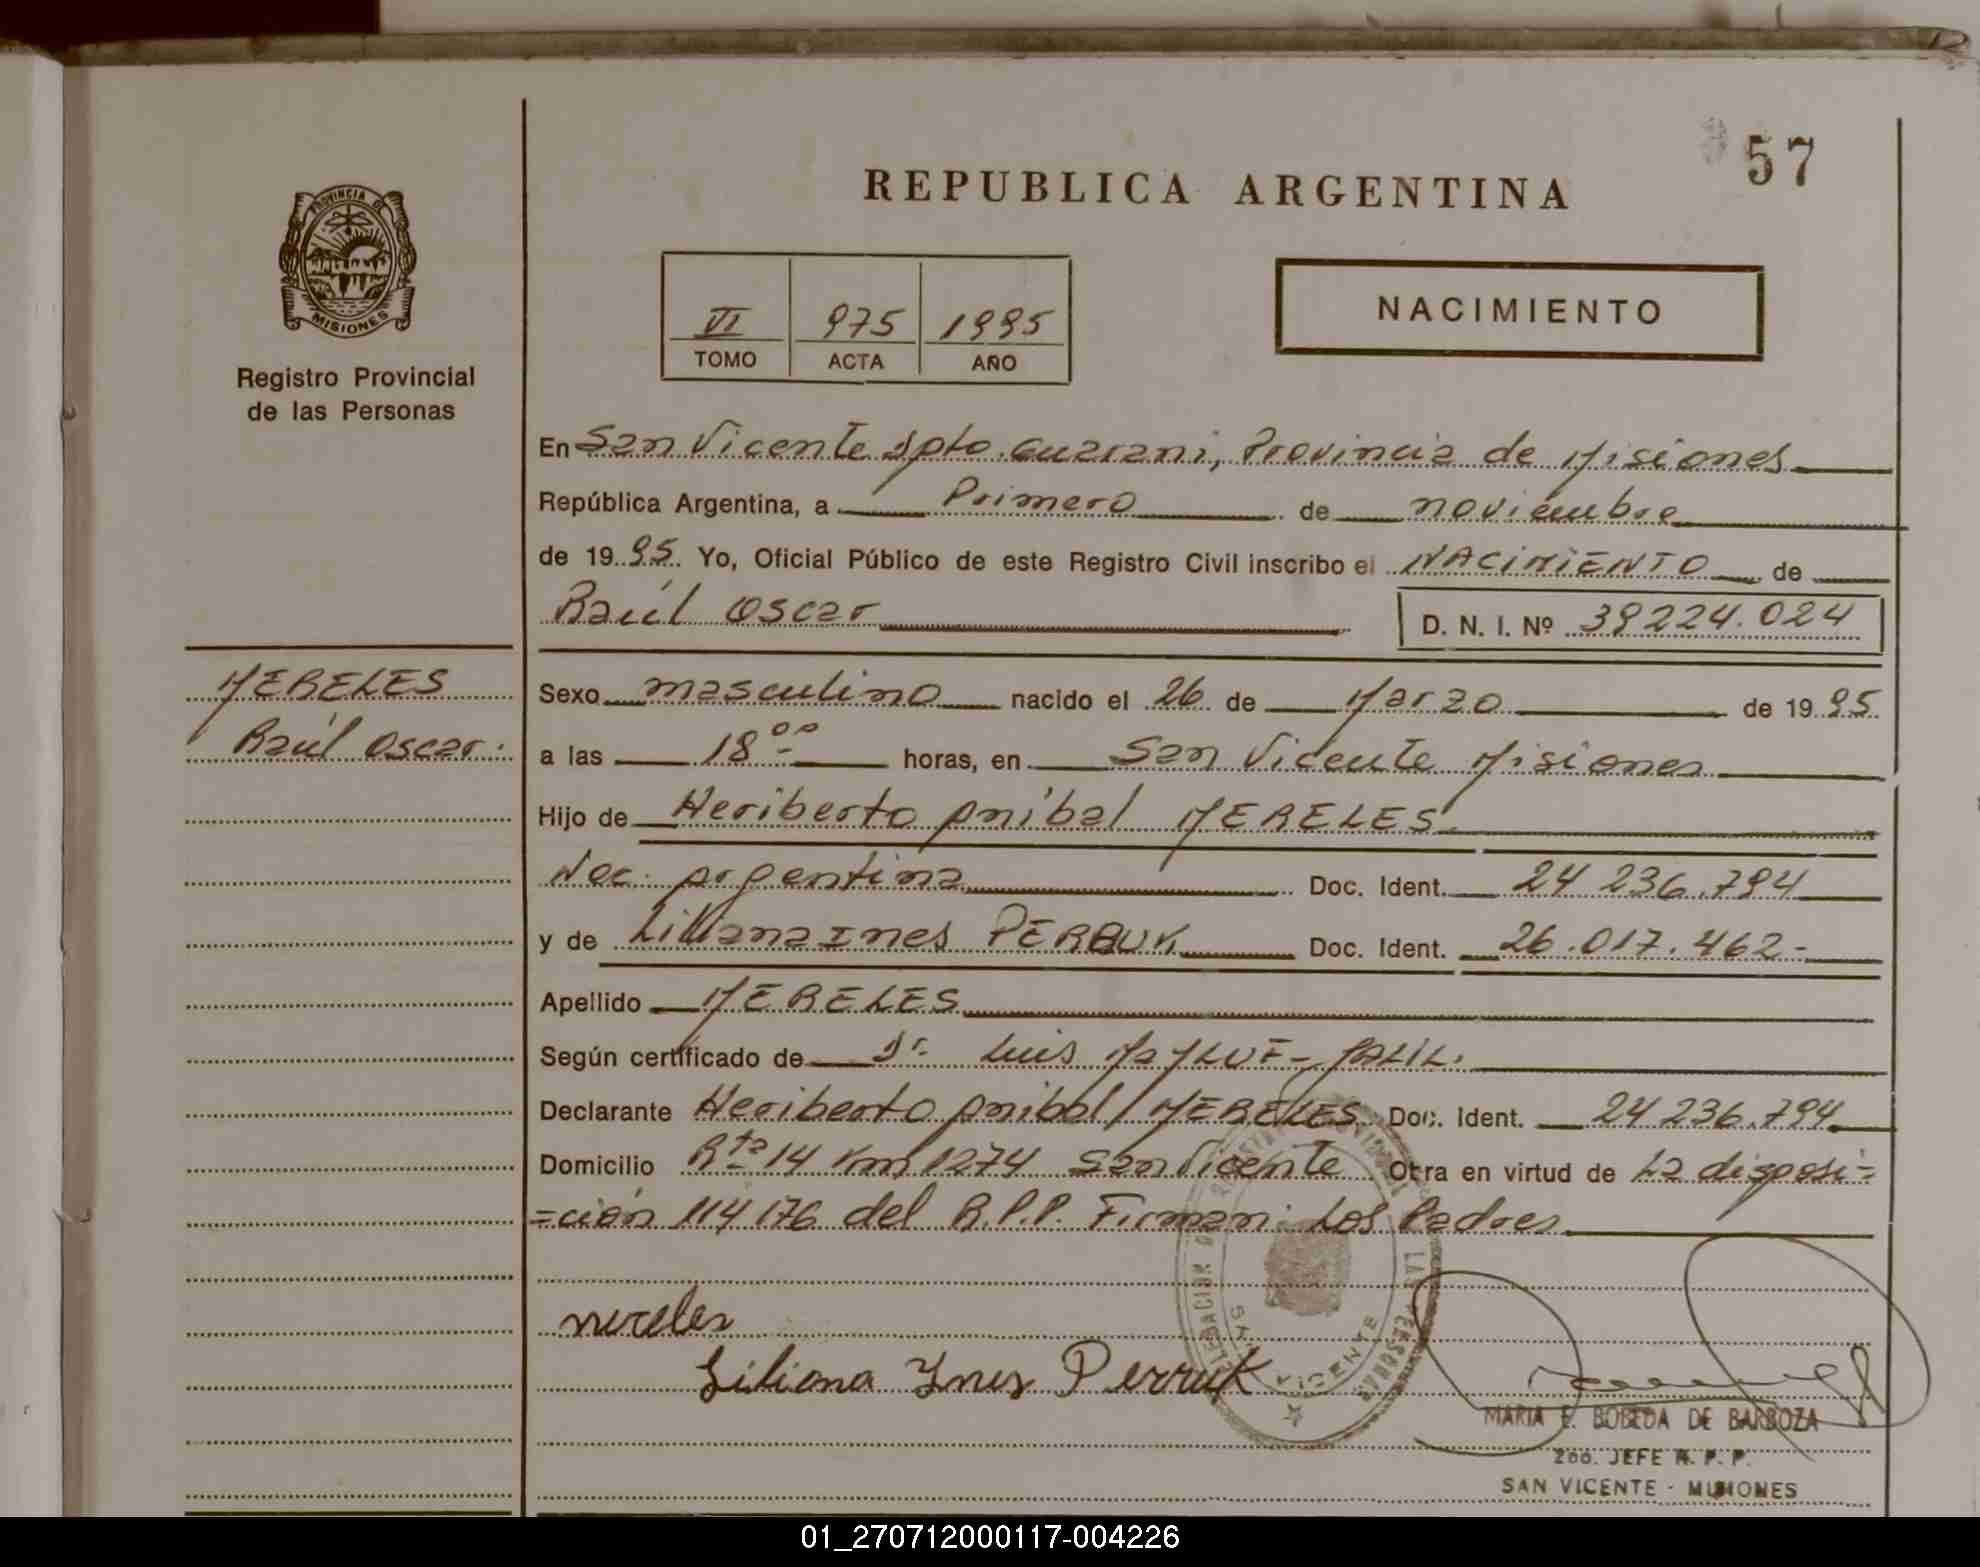 57
PROVINCIA DE
MISIONES
Registro Provincial
de las Personas
REPUBLICA ARGENTINA
VI 975 1995
TOMO ACTA AÑO
NACIMIENTO
En San Vicente Dpto. Guarani, Provincia de Misiones
República Argentina, a Primero de noviembre
de 19 95. Yo, Oficial Público de este Registro Civil inscribo el NACIMIENTO de
Raúl Oscar D. N. I. Nº 39224.024
MERELES
Raúl Oscar.
Sexo masculino nacido el 26 de Marzo de 19 95
a las 18 ºº horas, en San Vicente Misiones
Hijo de Heriberto Anibal MERELES
Nac. Argentina Doc. Ident. 24 236.794
y de Liliana Ines PERRUK Doc. Ident. 26.017.462-
Apellido MERELES
Según certificado de Dr. Luis
Declarante Heriberto Anibal MERELES Doc. Ident. 24 236.794
Domicilio Rta 14 Km 1274 San Vicente Otra en virtud de La disposi=
=ción 114/76 del R.P.P. Firman: Los Padres
mereles
Liliana Ynes Perruk
SAN VICENTE
MARIA E. BOBEDA DE BARBOZA
2do. JEFE R. P. P.
SAN VICENTE - MISIONES
01_270712000117-004226